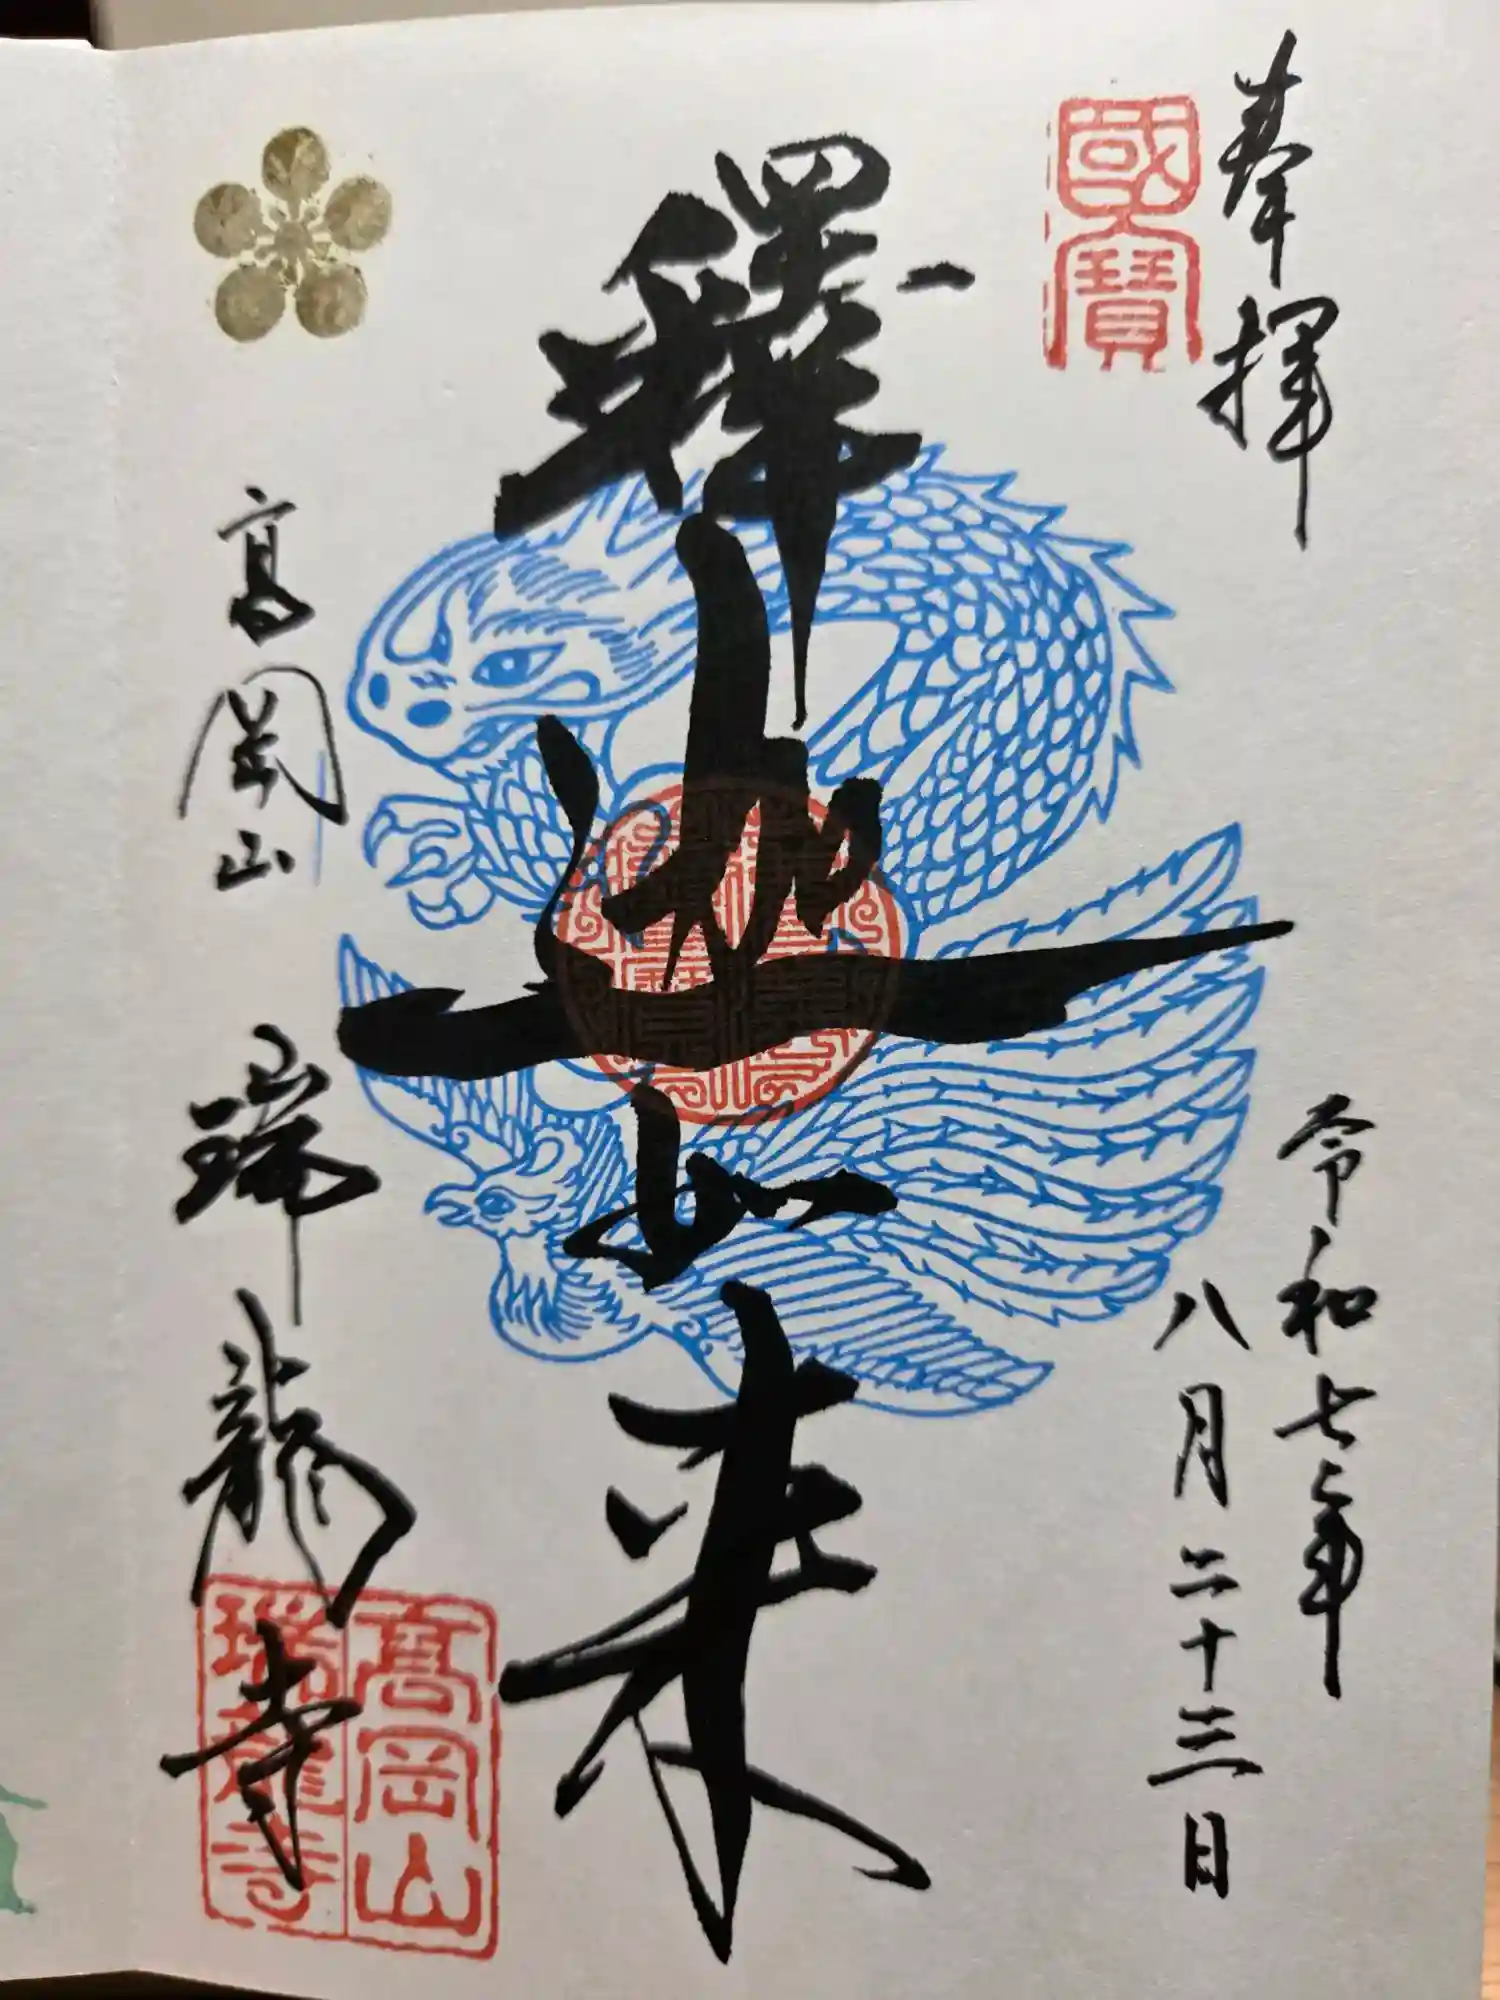 奉拝
國寶
令和七年
八月二十三日
釋迦如来
高岡山
瑞龍寺
高岡山
瑞龍寺